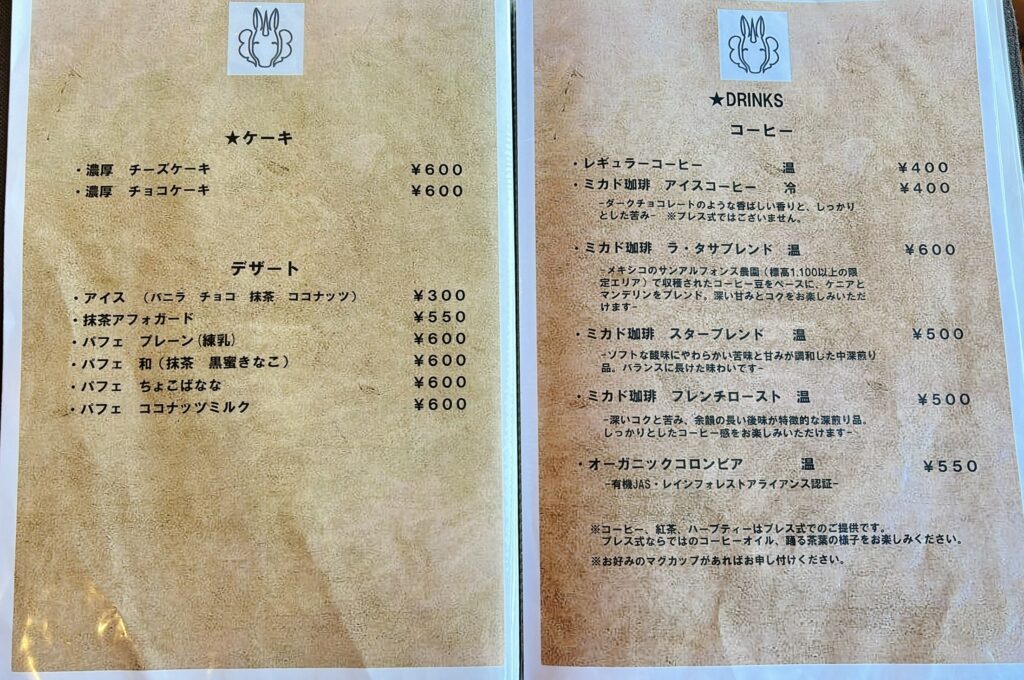 ★ケーキ
・濃厚　チーズケーキ　￥600
・濃厚　チョコケーキ　￥600
デザート
・アイス　（バニラ　チョコ　抹茶　ココナッツ）　￥300
・抹茶アフォガード　￥550
・パフェ　プレーン(練乳)　￥600
・パフェ　和（抹茶　黒蜜きなこ）　￥600
・パフェ　ちょこばなな　￥600
・パフェ　ココナッツミルク　￥600
★DRINKS
コーヒー
・レギュラーコーヒー　温　￥400
・ミカド珈琲　アイスコーヒー　冷　￥400
−ダークチョコレートのような香ばしい香りと、しっかり
とした苦み−　※プレス式ではございません。
・ミカド珈琲　ラ・タサブレンド　温　￥600
−メキシコのサンアルフォンス農園（標高1.100以上の限
定エリア）で収穫されたコーヒー豆をベースに、ケニアと
マンデリンをブレンド。深い甘みとコクをお楽しみいただ
けます−
・ミカド珈琲　スターブレンド　温　￥500
−ソフトな酸味にやわらかい苦味と甘みが調和した中深煎り
品。バランスに長けた味わいです−
・ミカド珈琲　フレンチロースト　温　￥500
−深いコクと苦み、余韻の長い後味が特徴的な深煎り品。
しっかりとしたコーヒー感をお楽しみいただけます−
・オーガニックコロンビア　温　￥550
−有機JAS・レインフォレストアライアンス認証−
※コーヒー、紅茶、ハーブティーはプレス式でのご提供です。
プレス式ならではのコーヒーオイル、踊る茶葉の様子をお楽しみください。
※お好みのマグカップがあればお申し付けください。